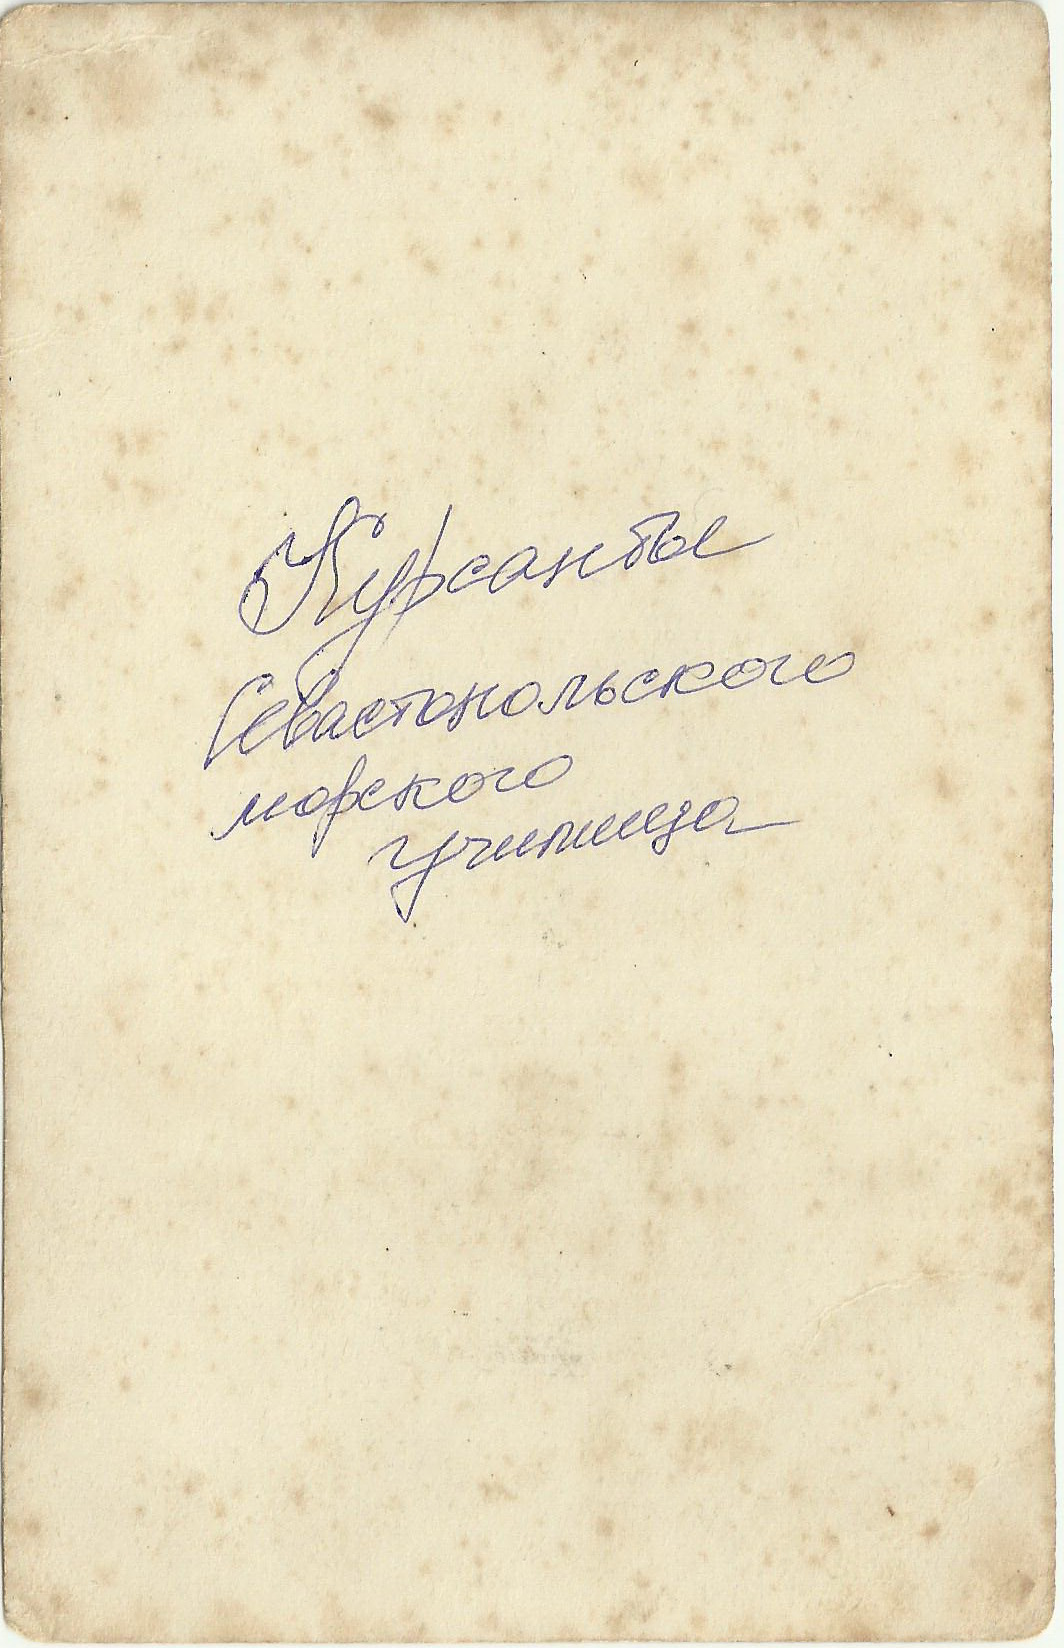 Курсанты
Севастопольского
морского
училища